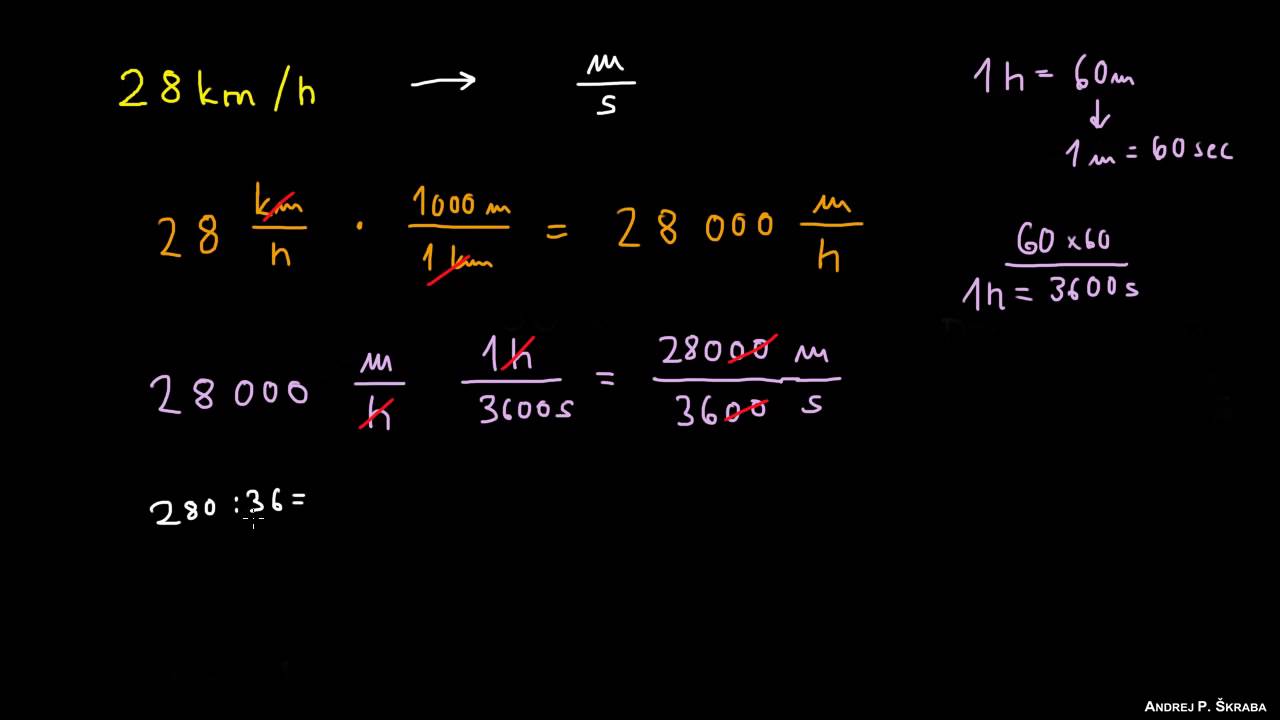 28 km/h → m/s
1h = 60m
↓
1m = 60 sec
28 km/h · 1000 m/1 km = 28 000 m/h
60 x 60
1h = 3600 s
28 000 m/h 1h/3600 s = 28000 m/3600 s
280 : 36 =
ANDREJ P. ŠKRABA